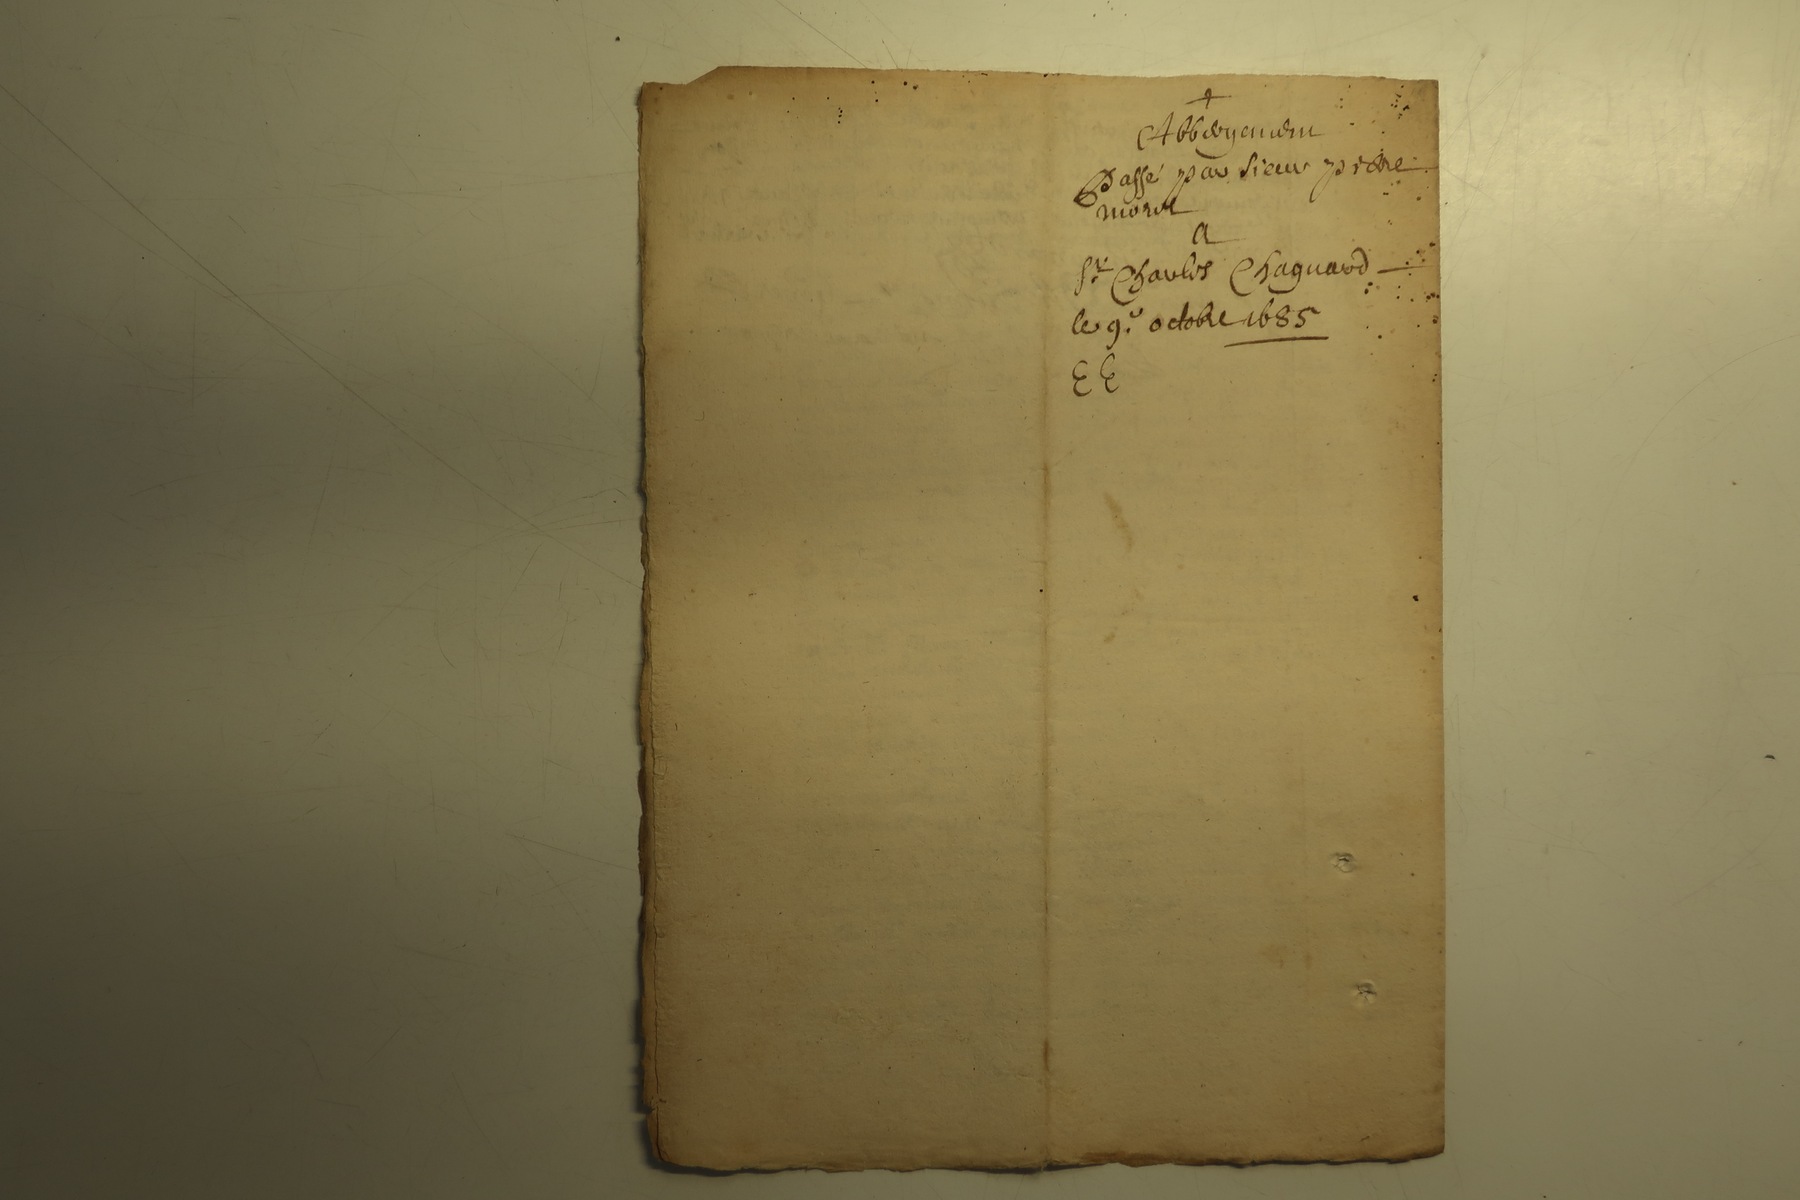 Abbergement
Passé par sieur pierre
morel
a
Sr Charles Chaguard
le 9e octobre 1685
EE